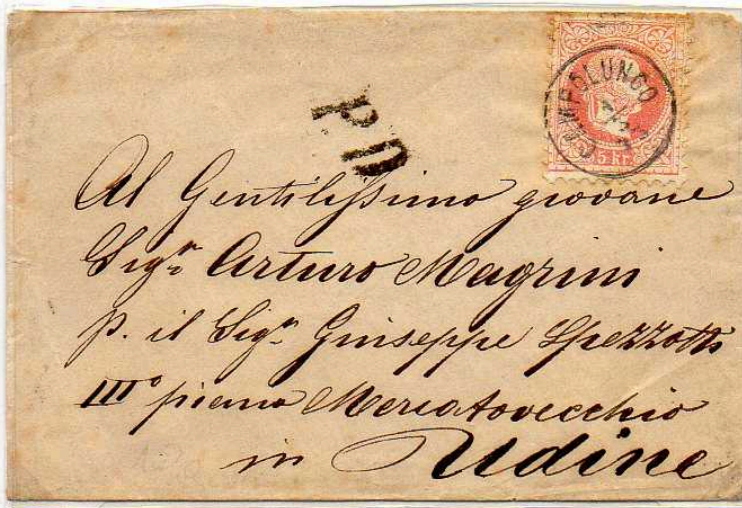 CAMPOLUNGO
5 kr.
P D
Al Gentilissimo giovane
Sigr Arturo Magrini
p. il Sigr Giuseppe Spezzotti
III° piano Mercatovecchio
in Udine